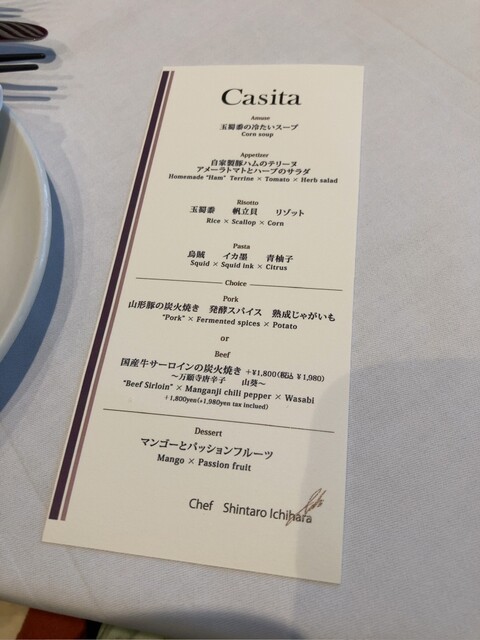 Casita
Amuse
玉蜀黍の冷たいスープ
Corn soup
Appetizer
自家製豚ハムのテリーヌ
アメーラトマトとハーブのサラダ
Homemade "Ham" Terrine × Tomato × Herb salad
Risotto
玉蜀黍 帆立貝 リゾット
Rice × Scallop × Corn
Pasta
烏賊 イカ墨 青柚子
Squid × Squid ink × Citrus
Choice
Pork
山形豚の炭火焼き 発酵スパイス 熟成じゃがいも
"Pork" × Fermented spices × Potato
or
Beef
国産牛サーロインの炭火焼き +¥1,800(税込 ¥1,980)
～万願寺唐辛子 山葵～
"Beef Sirloin" × Manganji chili pepper × Wasabi
+1,800yen(+1,980yen tax inclued)
Dessert
マンゴーとパッションフルーツ
Mango × Passion fruit
Chef Shintaro Ichihara